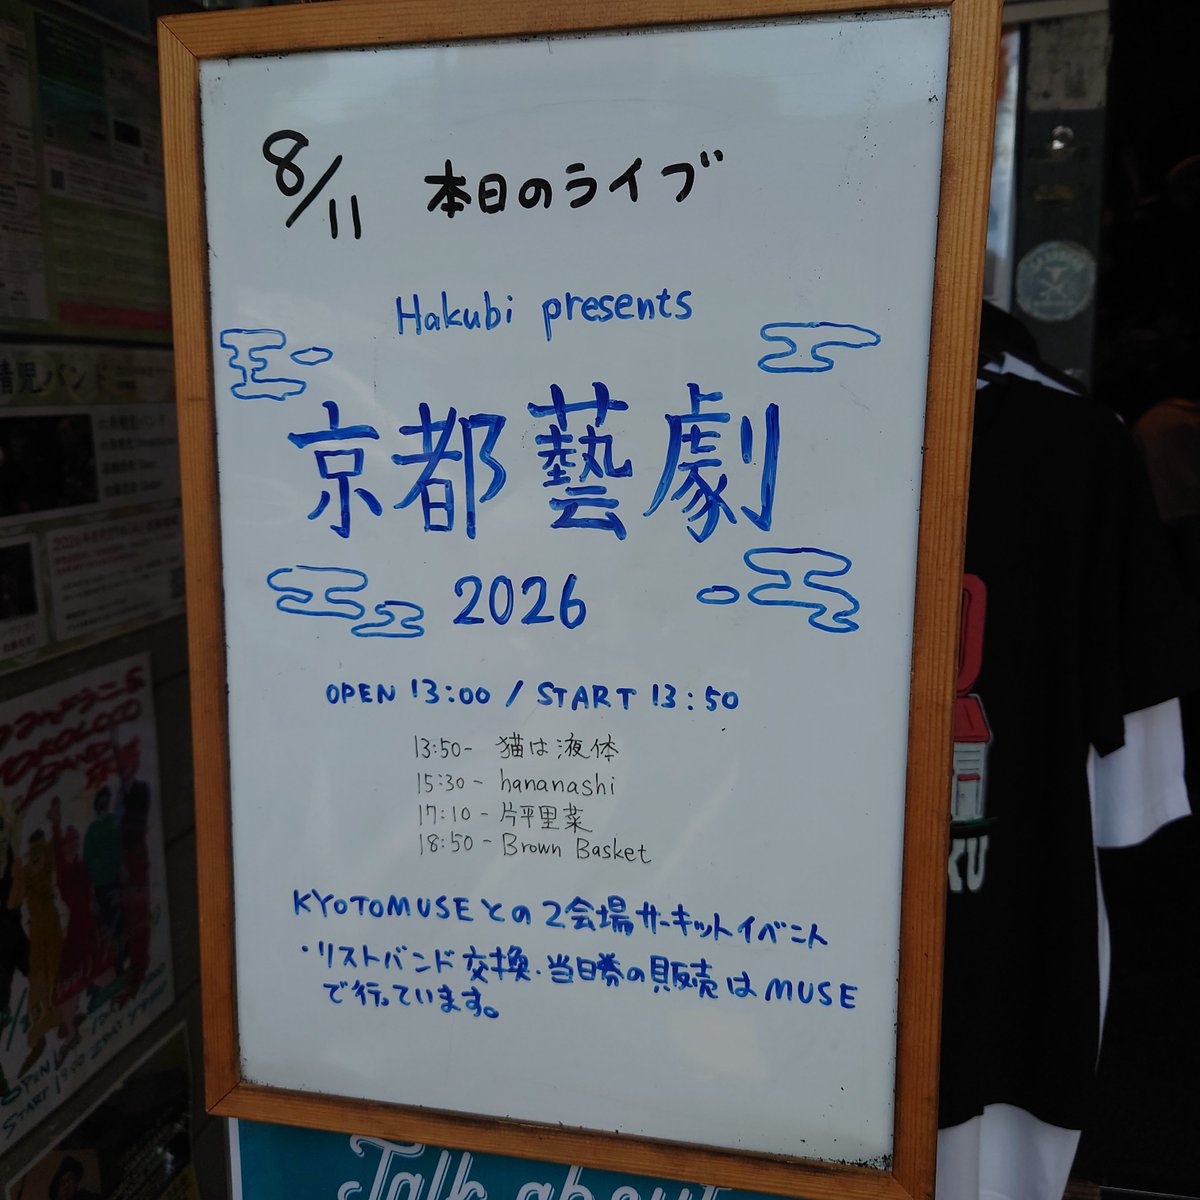 8/11 本日のライブ
Hakubi presents
京都藝劇
2026
OPEN 13:00 / START 13:50
13:50- 猫は液体
15:30- hananashi
17:10- 片平里菜
18:50- Brown Basket
KYOTOMUSEとの2会場サーキットイベント
・リストバンド交換・当日券の販売はMUSE
で行っています。
Talk about